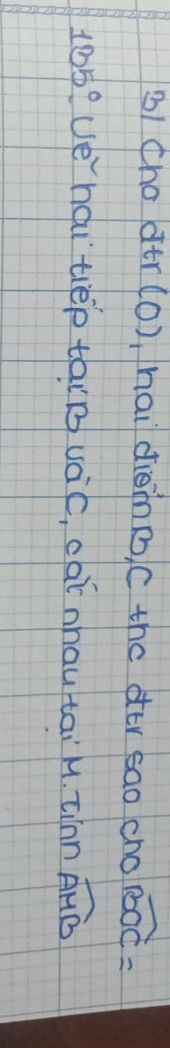 3/ Cho đtr (O), hai điểm B, C thc đtr sao cho BOC =
135°. Vẽ hai tiếp tại B và C, cắt nhau tại M. Tính AMB